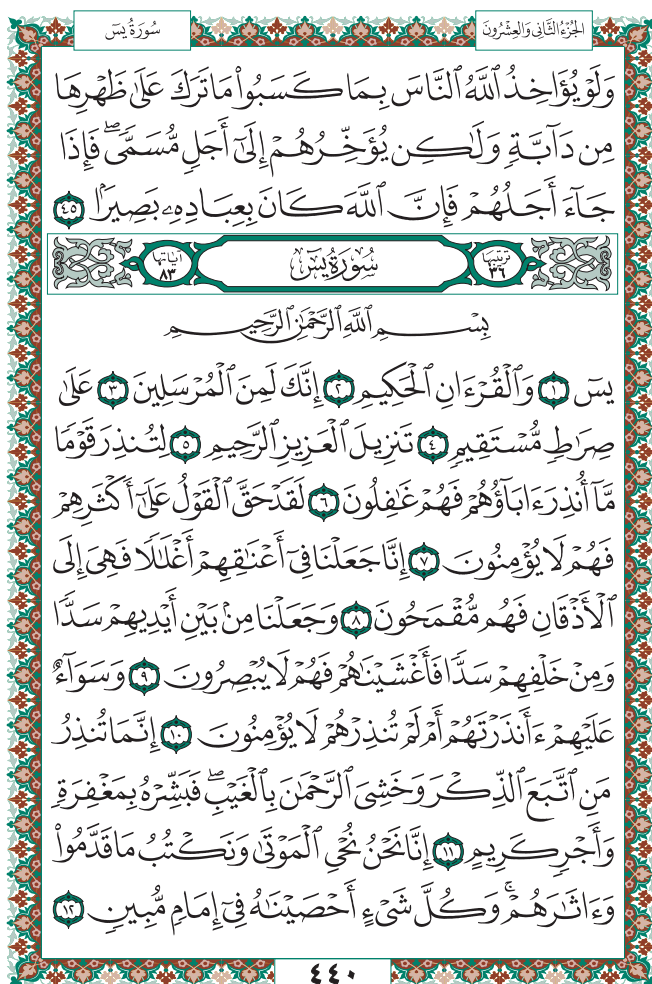 الجُزْءُ الثَّانِي وَالعِشْرُونَ
سُورَةُ يسٓ
وَلَوْ يُؤَاخِذُ ٱللَّهُ ٱلنَّاسَ بِمَا كَسَبُوا۟ مَا تَرَكَ عَلَىٰ ظَهْرِهَا
مِن دَآبَّةٍ وَلَٰكِن يُؤَخِّرُهُمْ إِلَىٰٓ أَجَلٍ مُّسَمًّى ۖ فَإِذَا
جَآءَ أَجَلُهُمْ فَإِنَّ ٱللَّهَ كَانَ بِعِبَادِهِۦ بَصِيرًۢا ٤٥
ترتيبها ٣٦ سُورَةُ يسٓ آياتها ٨٣
بِسْمِ ٱللَّهِ ٱلرَّحْمَٰنِ ٱلرَّحِيمِ
يسٓ ١ وَٱلْقُرْءَانِ ٱلْحَكِيمِ ٢ إِنَّكَ لَمِنَ ٱلْمُرْسَلِينَ ٣ عَلَىٰ
صِرَٰطٍ مُّسْتَقِيمٍ ٤ تَنزِيلَ ٱلْعَزِيزِ ٱلرَّحِيمِ ٥ لِتُنذِرَ قَوْمًا
مَّآ أُنذِرَ ءَابَآؤُهُمْ فَهُمْ غَٰفِلُونَ ٦ لَقَدْ حَقَّ ٱلْقَوْلُ عَلَىٰٓ أَكْثَرِهِمْ
فَهُمْ لَا يُؤْمِنُونَ ٧ إِنَّا جَعَلْنَا فِىٓ أَعْنَٰقِهِمْ أَغْلَٰلًا فَهِىَ إِلَى
ٱلْأَذْقَانِ فَهُم مُّقْمَحُونَ ٨ وَجَعَلْنَا مِنۢ بَيْنِ أَيْدِيهِمْ سَدًّا
وَمِنْ خَلْفِهِمْ سَدًّا فَأَغْشَيْنَٰهُمْ فَهُمْ لَا يُبْصِرُونَ ٩ وَسَوَآءٌ
عَلَيْهِمْ ءَأَنذَرْتَهُمْ أَمْ لَمْ تُنذِرْهُمْ لَا يُؤْمِنُونَ ١٠ إِنَّمَا تُنذِرُ
مَنِ ٱتَّبَعَ ٱلذِّكْرَ وَخَشِىَ ٱلرَّحْمَٰنَ بِٱلْغَيْبِ ۖ فَبَشِّرْهُ بِمَغْفِرَةٍ
وَأَجْرٍ كَرِيمٍ ١١ إِنَّا نَحْنُ نُحْىِ ٱلْمَوْتَىٰ وَنَكْتُبُ مَا قَدَّمُوا۟
وَءَاثَٰرَهُمْ ۚ وَكُلَّ شَىْءٍ أَحْصَيْنَٰهُ فِىٓ إِمَامٍ مُّبِينٍ ١٢
٤٤٠